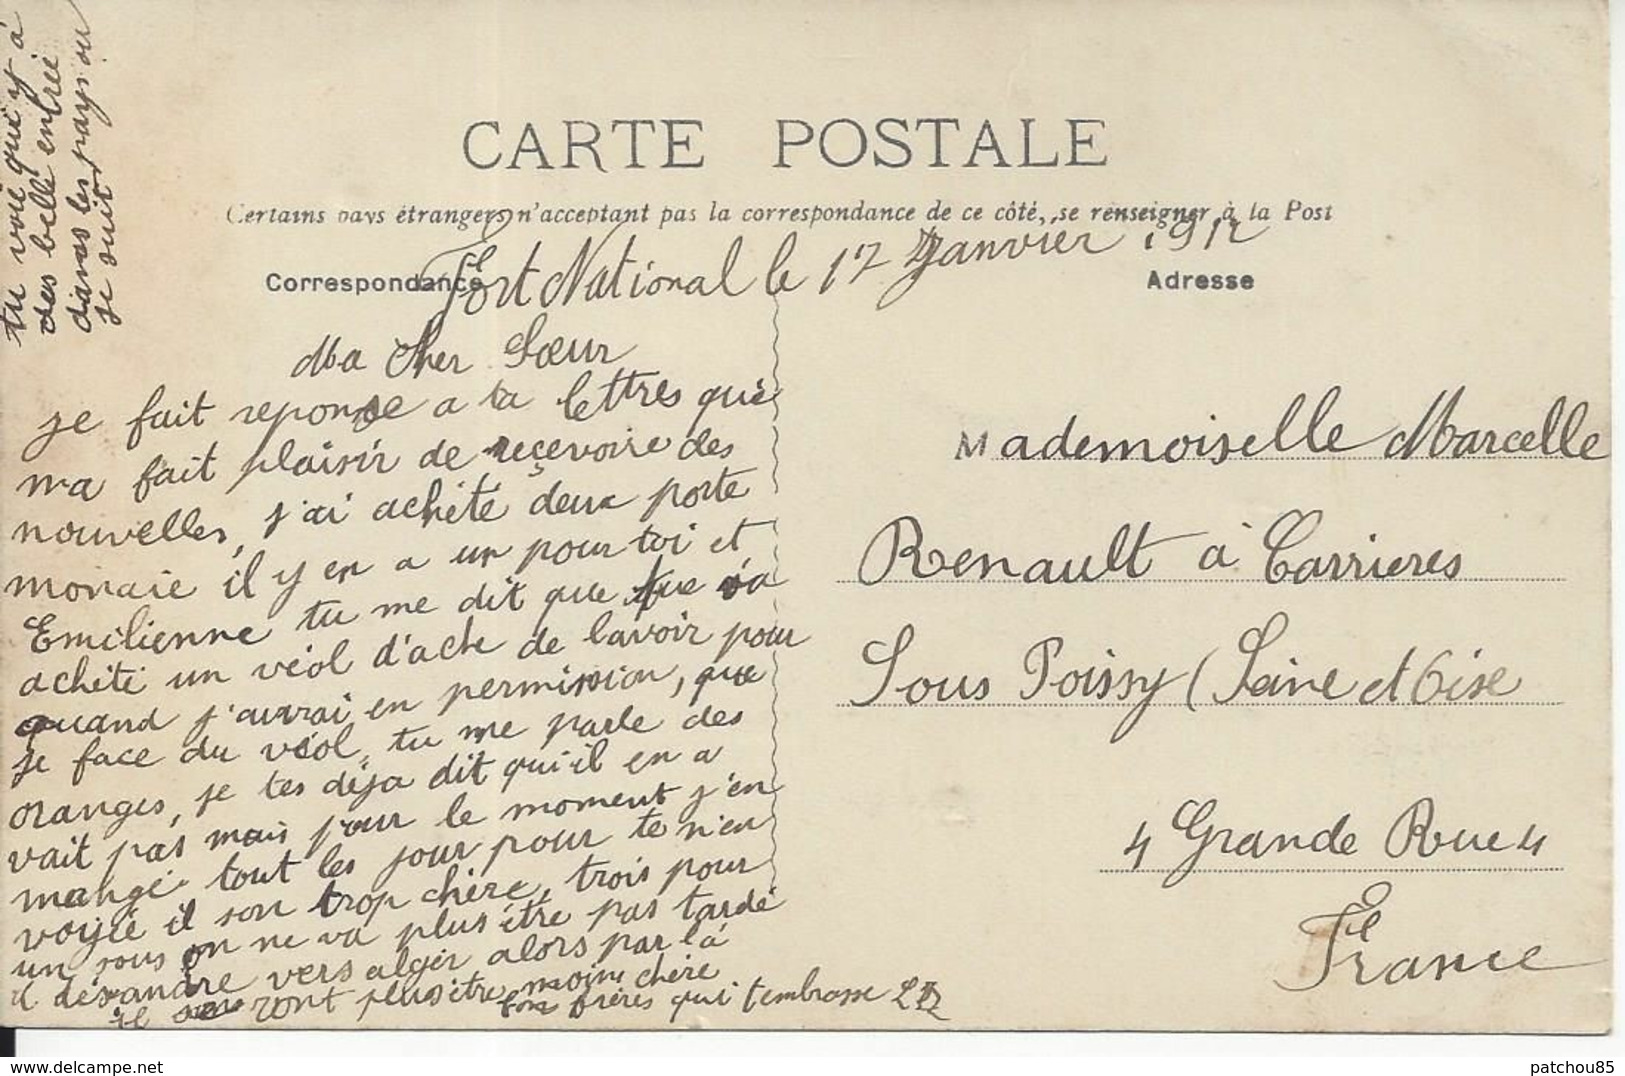 tu voie qui y à
des belle entrée
dans les pays ou
je suit
CARTE POSTALE
Certains pays étrangers n'acceptant pas la correspondance de ce côté, se renseigner à la Post
Correspondance
Adresse
Fort National le 17 Janvier 1912
Ma Cher Sœur
je fait reponse a ta lettres que
ma fait plaisir de reçevoire des
nouvelles, j'ai achété deux porte
monaie il y en a un pour toi et
Emilienne tu me dit que tue va
achété un véol d'ache de lavoir pour
quand j'aurrai en permission, que
je face du véol, tu me parle des
oranges, je tes déja dit qu'il en a
vait pas mais pour le moment j'en
mangé tout les jour pour te n'en
voyié il son trop chère, trois pour
un sous on ne va plus être pas tardé
a désandre vers alger alors par là
il seront plusètre moins chère
ton frères qui t'embrasse L R
Mademoiselle Marcelle
Renault à Carrieres
Sous Poissy (Seine et Oise
4 Grande Rue 4
France
patchou85